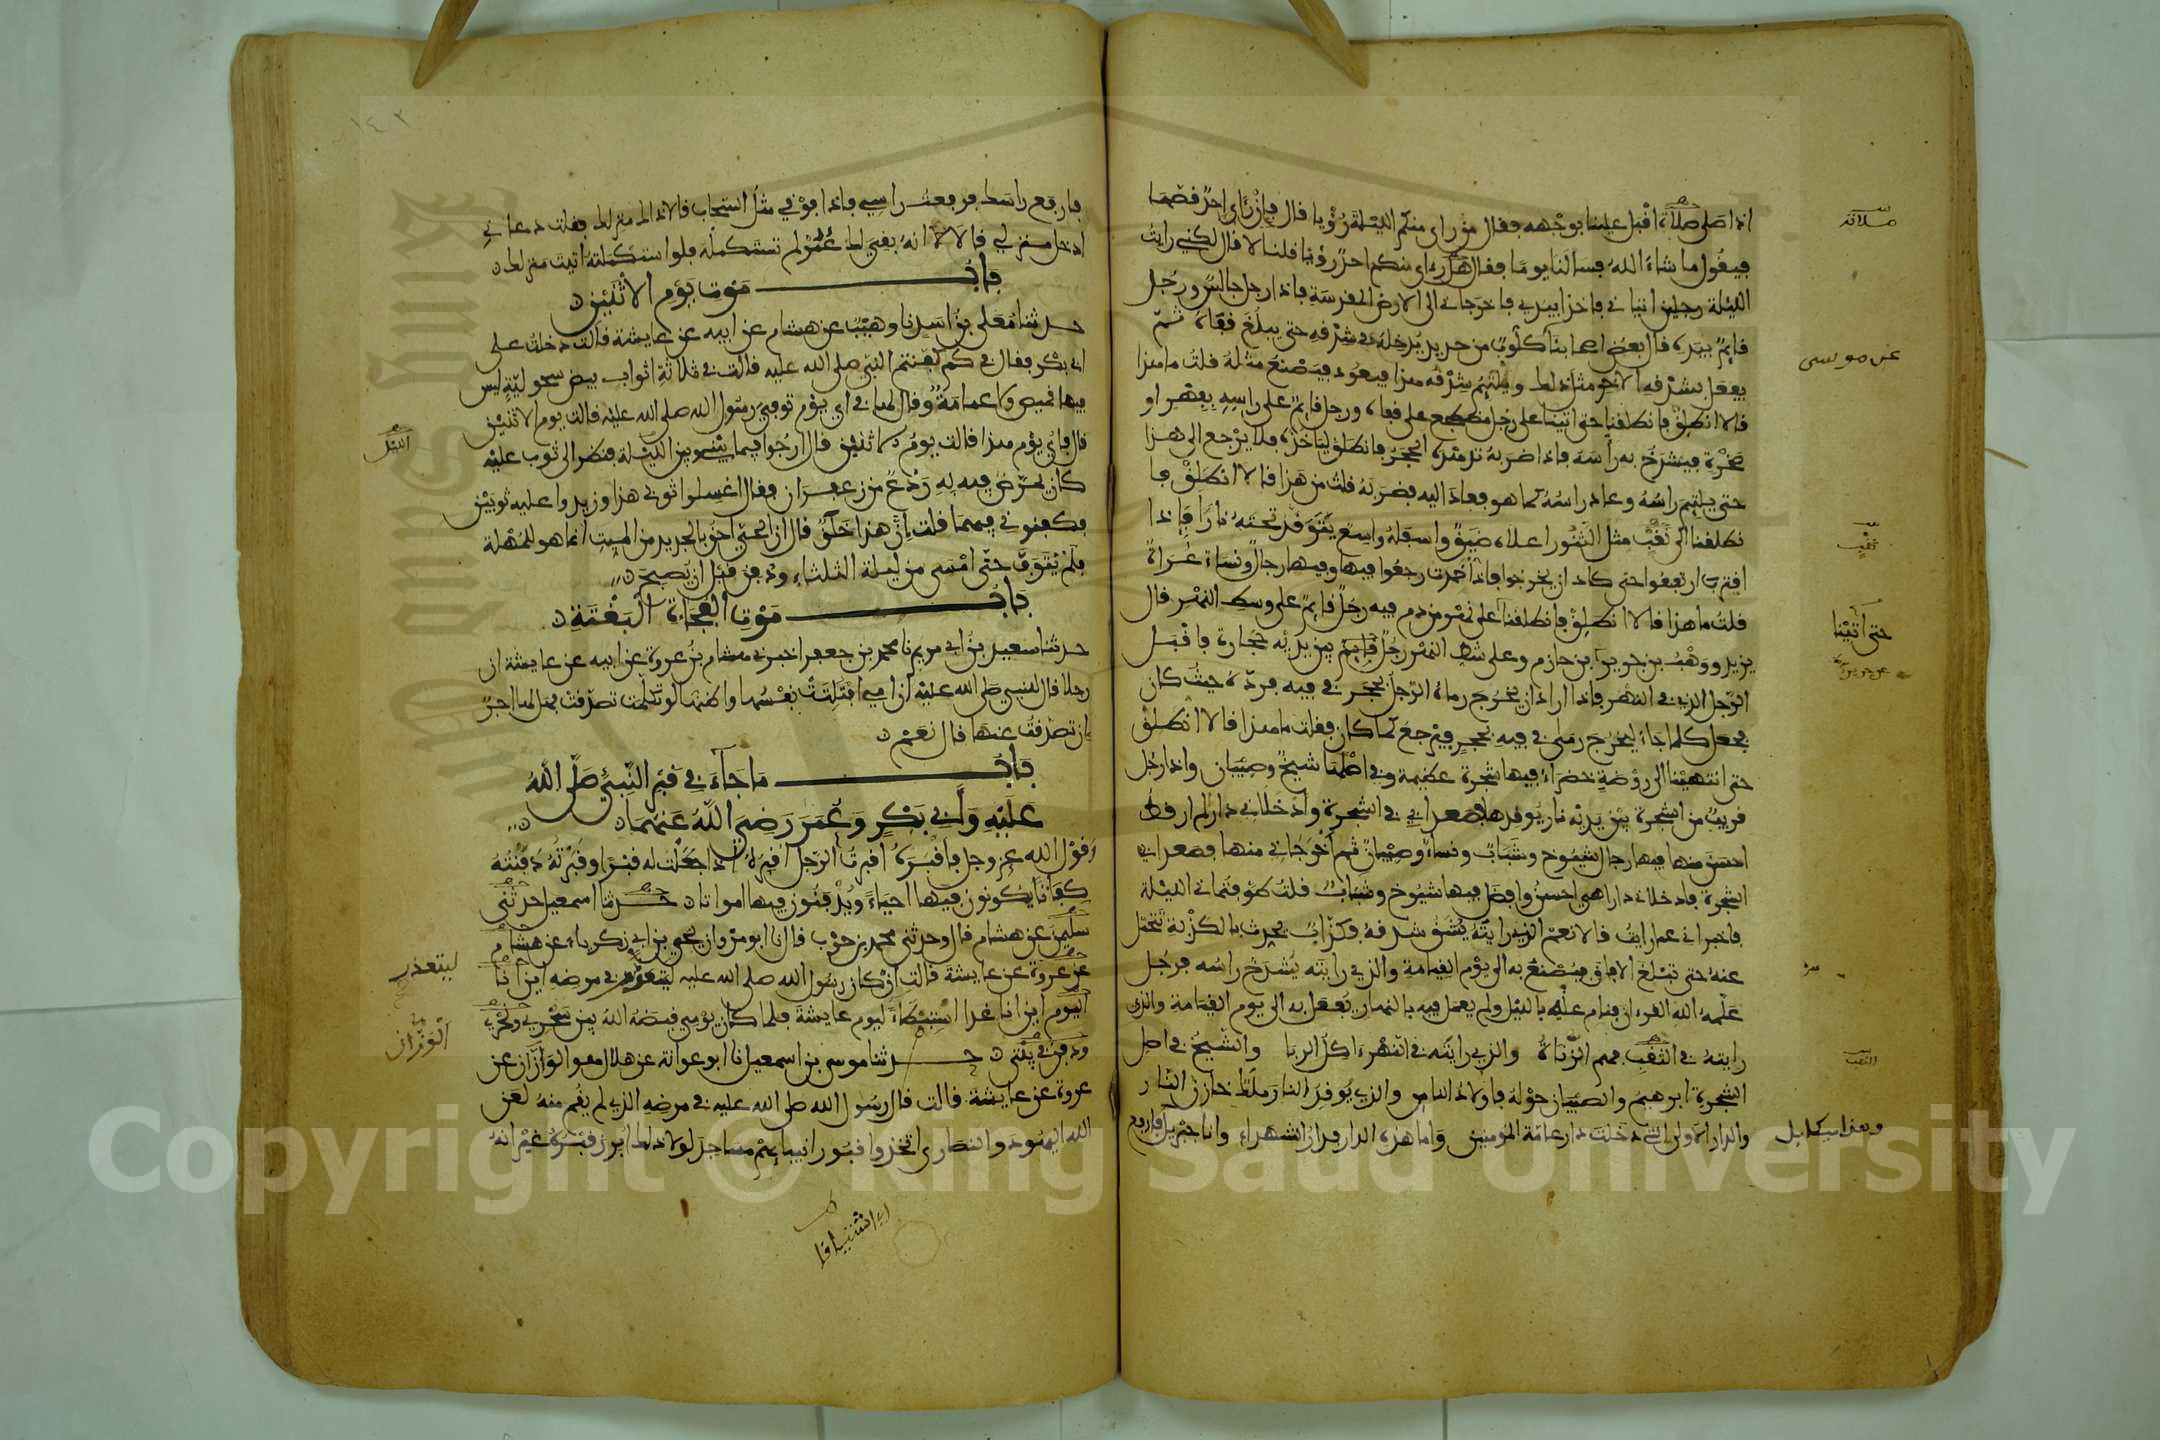 اذا صلى صلاة اقبل علينا بوجهه فقال من راى منكم الليلة رؤيا قال فإن رأى احد قصها
فيقول ما شاء الله فسالنا يوما فقال هل رءاى منكم احد رؤيا قلنا لا قال لكني رايت
الليلة رجلين اتياني فاخذا بيدي فاخرجاني الى الارض المقدسة فاذا رجل جالس ورجل
قائم بيده قال بعض اصحابنا كلوب من حديد يدخله في شدقه حتى يبلغ قفاه ثم
يفعل بشدقه الآخر مثل ذلك ويلتئم شدقه هذا فيعود فيصنع مثله قلت ما هذا
قالا انطلق فانطلقنا حتى اتينا على رجل مضطجع على قفاه ورجل قائم على راسه بفهر او
صخرة فيشدخ به رأسه فاذا ضربه تدهده الحجر فانطلق ليأخذه فلا يرجع الى هذا
حتى يلتئم راسه وعاد راسه كما هو فعاد اليه فضربه قلت من هذا قالا انطلق فا
نطلقنا الى نقب مثل التنور اعلاه ضيق واسفله واسع يتوقد تحته نارا فإذا
اقترب ارتفعوا حتى كاد ان يخرجوا فاذا خمدت رجعوا فيها وفيها رجال ونساء عراة
قلت ما هذا قالا انطلق فانطلقنا على نهر من دم فيه رجل قائم على وسط النهر قال
يزيد ووهب بن جرير بن حازم وعلى شط النهر رجل قائم بين يديه حجارة فاقبل
الرجل الذي في النهر فاذا اراد ان يخرج رماه الرجل بحجر في فيه فرده حيث كان
فجعل كلما جاء ليخرج رمى في فيه بحجر فيرجع كما كان فقلت ما هذا قالا انطلق
حتى انتهينا الى روضة خضراء فيها شجرة عظيمة وفي اصلها شيخ وصبيان واذا رجل
قريب من الشجرة بين يديه نار يوقدها فصعدا بي في الشجرة وأدخلاني دارا لم ار قط
احسن منها فيها رجال شيوخ وشباب ونساء وصبيان ثم اخرجاني منها فصعدا بي
الشجرة فادخلاني دارا هي احسن وافضل فيها شيوخ وشباب قلت طوفتماني الليلة
فاخبراني عما رايت قالا نعم الذي رايته يشق شدقه فكذاب يحدث بالكذبة فتحمل
عنه حتى تبلغ الآفاق فيصنع به الى يوم القيامة والذي رايته يشدخ راسه فرجل
علمه الله القرءان فنام عنه بالليل ولم يعمل فيه بالنهار يفعل به الى يوم القيامة والذي
رايته في النقب فهم الزناة والذي رايته في النهر ءاكل الربا والشيخ في اصل
الشجرة ابرهيم والصبيان حوله فاولاد الناس والذي يوقد النار ملك خازن النار
والدار الاولى التي دخلت دار عامة المؤمنين واما هذه الدار فدار الشهداء وانا جبريل
صلاته
عن موسى
ثقب
حتى أتينا
عن جرير
الثقب
وهذا ميكايل
فارفع راسك فرفعت راسي فاذا فوقي مثل السحاب قالا ذاك منزلك فقلت دعاني
ادخل منزلي قالا انه بقي لك عمر لم تستكمله فلو استكملته أتيت منزلك
باب موت يوم الاثنين
حدثنا معلى بن اسد نا وهيب عن هشام عن ابيه عن عايشة قالت دخلت على
ابي بكر فقال في كم كفنتم النبي صلى الله عليه قالت في ثلاثة اثواب بيض سحولية ليس
فيها قميص ولا عمامة وقال لها في اي يوم توفي رسول الله صلى الله عليه قالت يوم الاثنين
قال فاي يوم هذا قالت يوم الاثنين قال ارجوا فيما بيني وبين الليلة فنظر الى ثوب عليه
كان يمرض فيه به ردع من زعفران فقال اغسلوا ثوبي هذا وزيدوا عليه ثوبين
فكفنوني فيهما قلت إن هذا خلق قال ان الحي احق بالجديد من الميت انما هو للمهلة
فلم يتوف حتى امسى من ليلة الثلثاء ودفن قبل ان يصبح
باب موت الفجاة البغتة
حدثنا سعيد بن ابي مريم نا محمد بن جعفر اخبرني هشام بن عروة عن ابيه عن عايشة ان
رجلا قال للنبي صلى الله عليه ان امي افتلتت نفسها واظنها لو تكلمت تصدقت فهل لها اجر
إن تصدقت عنها قال نعم
باب ما جآء في قبر النبي صلى الله
عليه وأبي بكر وعمر رضي الله عنهما
وقول الله عز وجل فاقبره اقبرت الرجل اقبره اذا جعلت له قبرا وقبرته دفنته
كفاتا يكونون فيها احياء ويدفنون فيها امواتا حدثنا اسمعيل حدثني
سليمن عن هشام قال وحدثني محمد بن حرب قال نا ابو مروان يحيى بن ابي زكرياء عن هشام
عن عروة عن عايشة قالت ان كان رسول الله صلى الله عليه ليتعذر في مرضه اين أنا
اليوم اين انا غدا استبطاء ليوم عايشة فلما كان يومي قبضه الله بين سحري ونحري
ودفن في بيتي حدثنا موسى بن اسمعيل نا ابو عوانة عن هلال هو الوزان عن
عروة عن عايشة قالت قال رسول الله صلى الله عليه في مرضه الذي لم يقم منه لعن
الله اليهود والنصارى اتخذوا قبور انبيائهم مساجد لولا ذلك ابرز قبره غير انه
الليل
ليتعذر
الوزان
Copyright © King Saud University